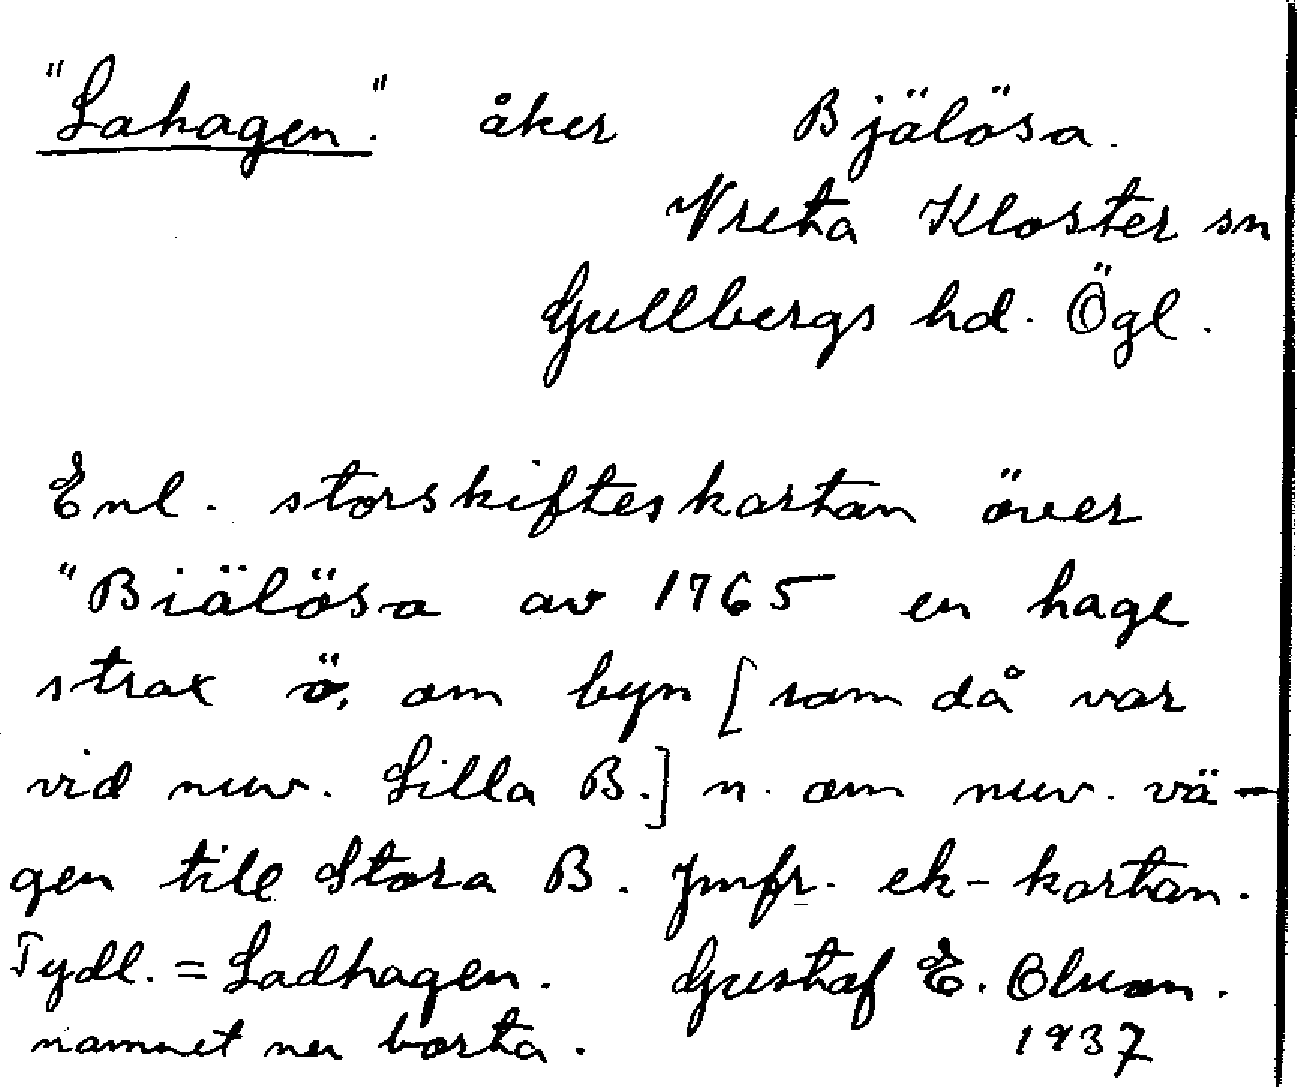 "Lahagen." åker Bjälösa.
Vreta Kloster sn
Gullbergs hd. Ögl.
Enl. storskifteskartan över
"Biälösa av 1765 en hage
strax ö. om byn [som då var
vid nuv. Lilla B.] n. om nuv. vä-
gen till Stora B. Jmfr. ek-kartan.
Tydl. = Ladhagen. Gustaf E. Olson.
namnet nu borta. 1937